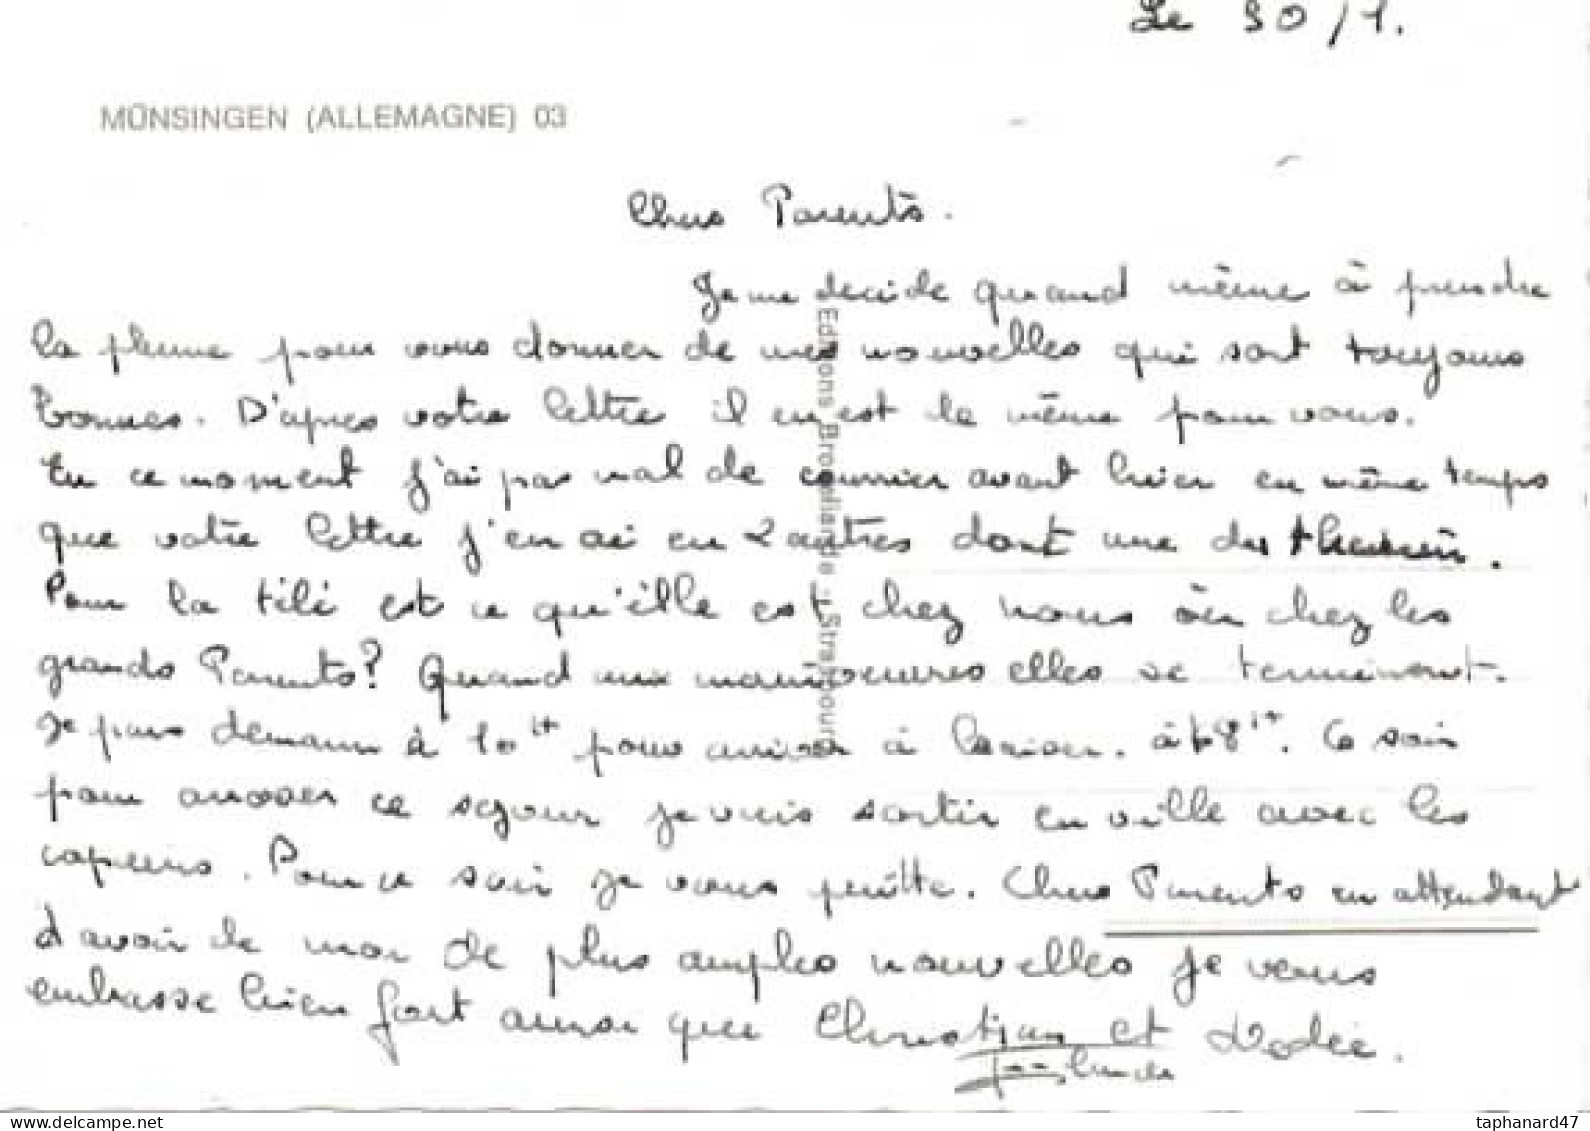 Le 30/1.
MÜNSINGEN (ALLEMAGNE) 03
Chers Parents.
Je me decide quand même à prendre
la plume pour vous donner de mes nouvelles qui sont toujours
bonnes. D'après votre lettre il en est de même pour vous.
En ce moment j'ai pas mal de courrier avant hier en même temps
que votre lettre j'en ai eu 2 autres dont une du
Pour la tili est ce qu'elle est chez nous ou chez les
grands Parents? Quand aux manoeuvres elles se terminent.
Je pars demain à 10H pour arriver à à 18H. Ce soir
pour arroser ce sejour je vais sortir en ville avec les
copains. Pour ce soir je vous quitte. Chers Parents en attendant
d'avoir de moi de plus amples nouvelles je vous
embrasse bien fort ainsi que Christian et
Editions Brocéliande - Strasbourg
taphanard47
www.delcampe.net